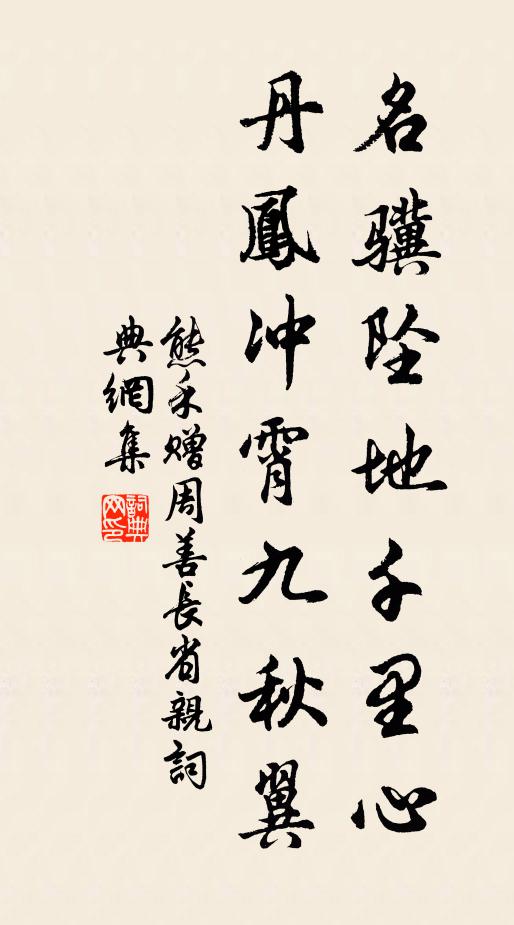 名驥坠地千里心
丹鳳冲霄九秋翼
熊禾赠周善長省親詞
典網集
詞典网印